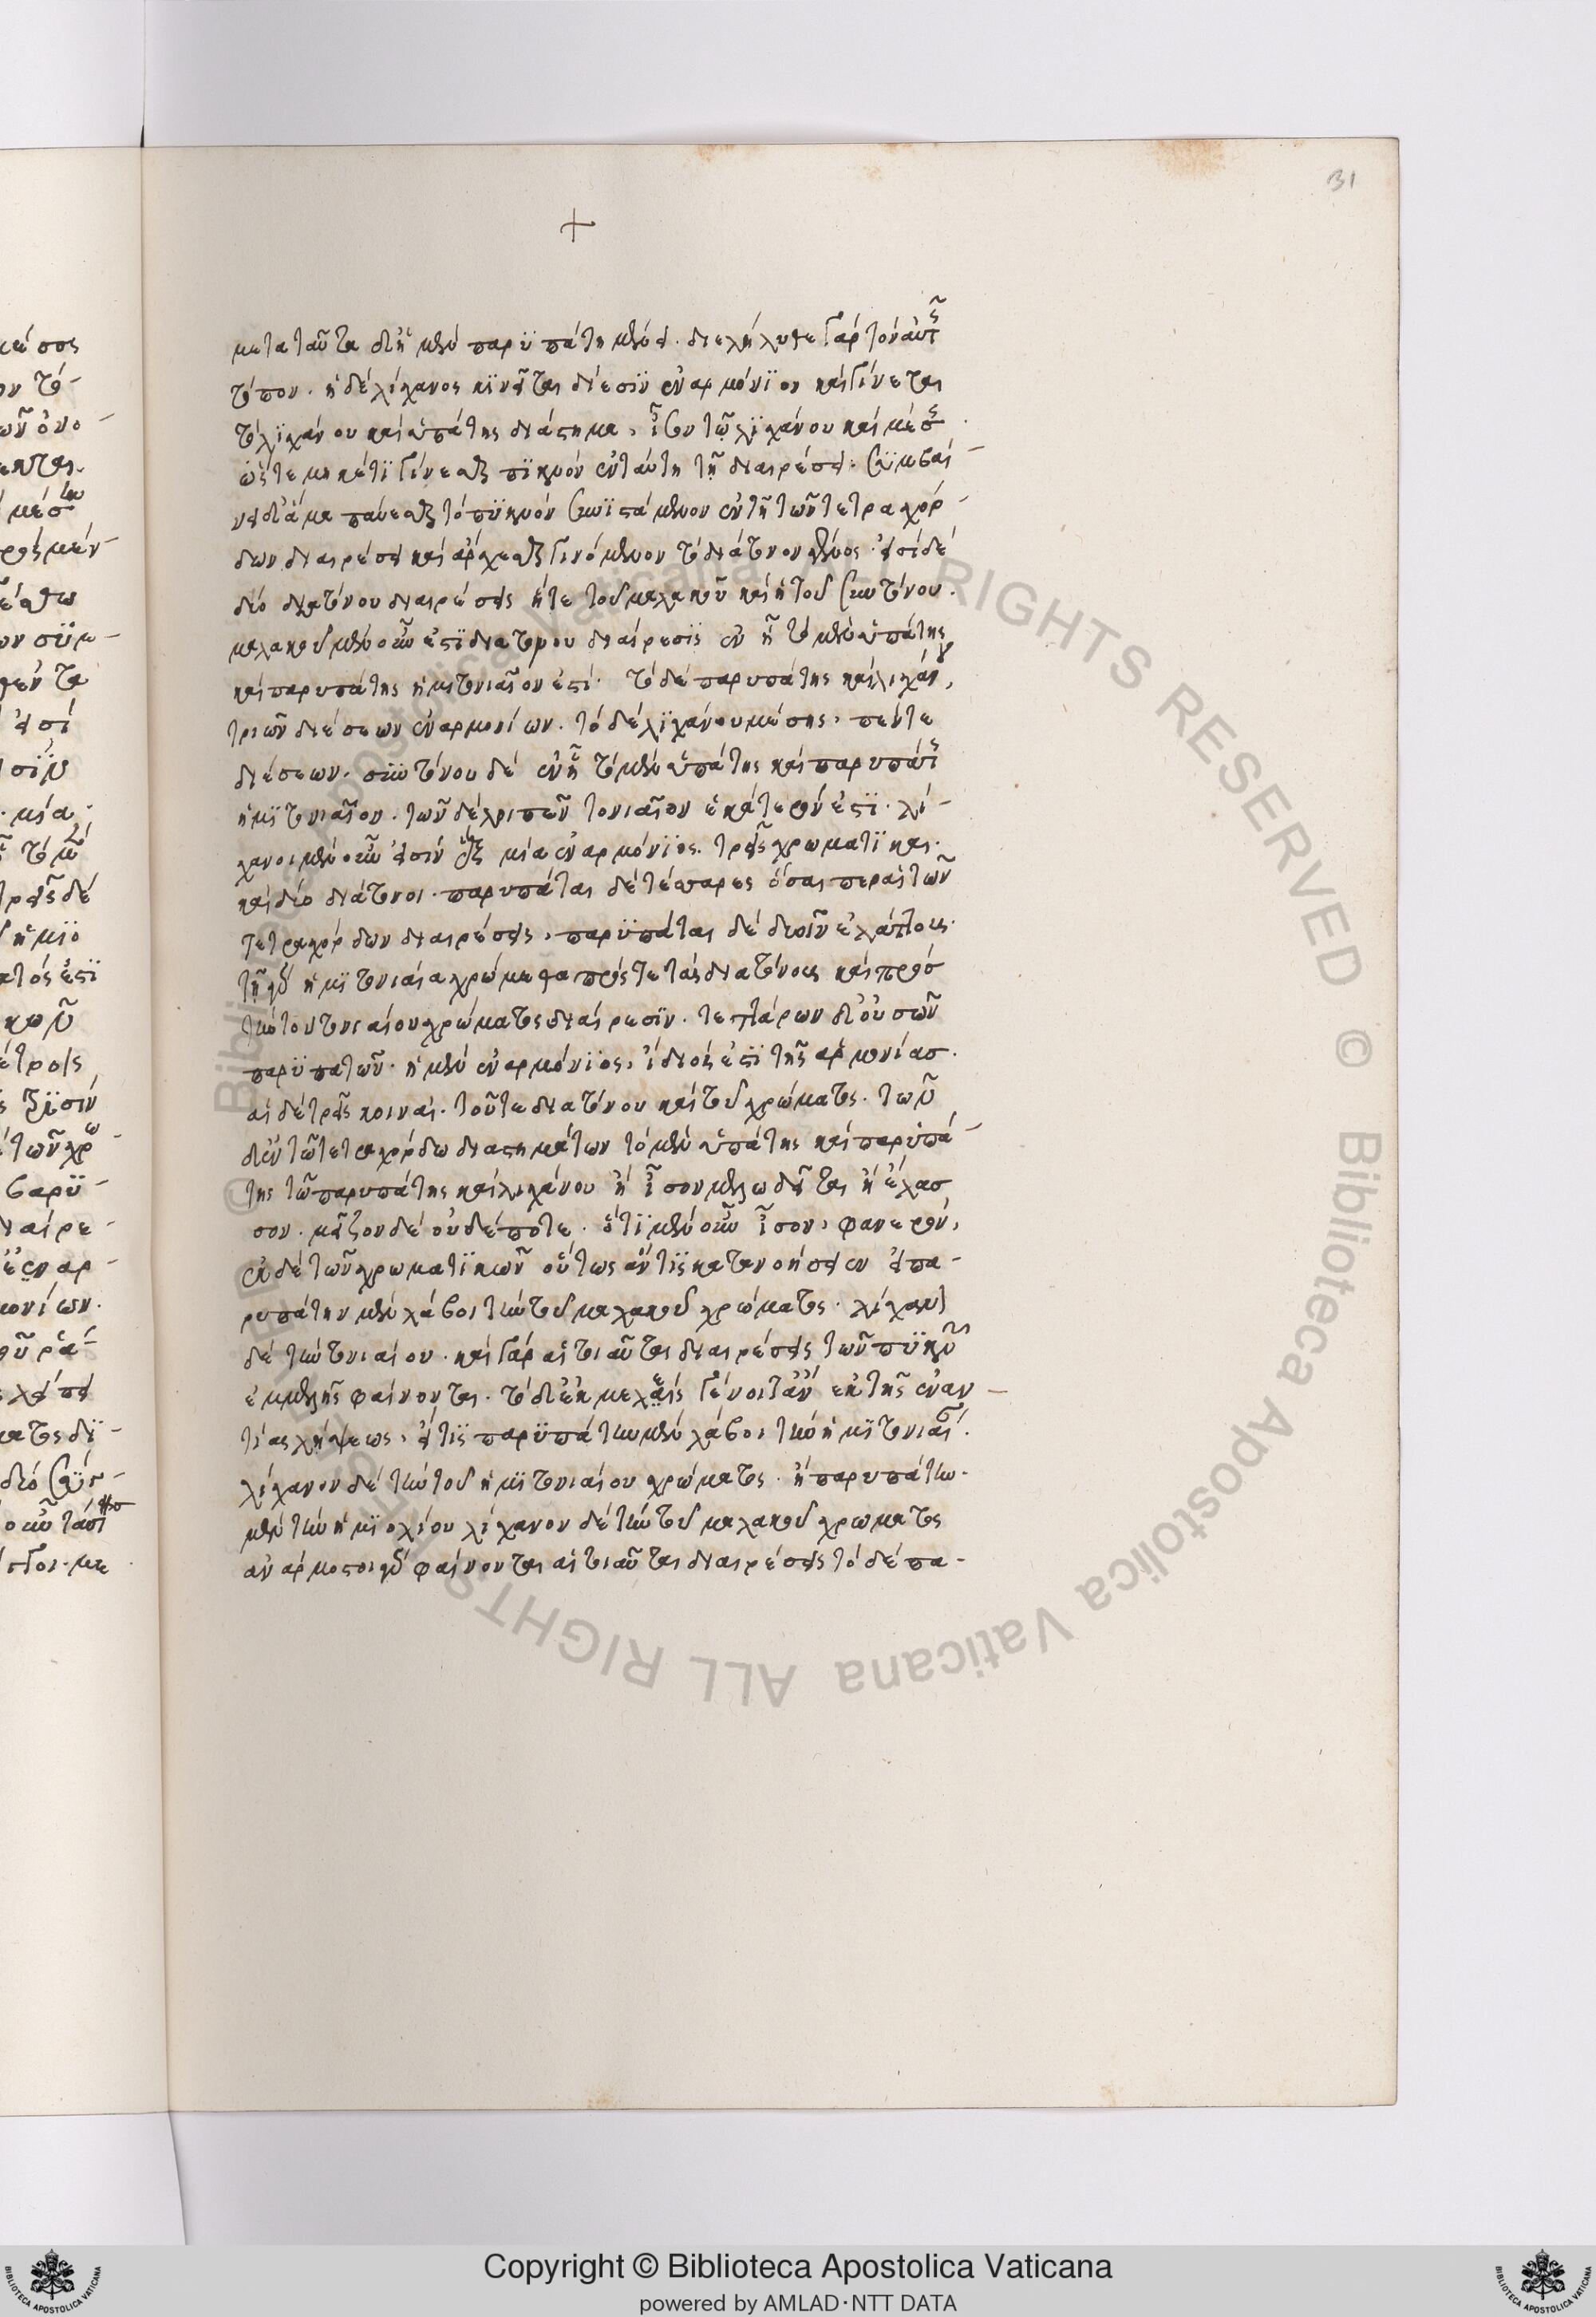 31
+
μετα ταῦτα δ' ἡ μὲν παρυπάτη μένει. διελήλυθε γὰρ τὸν αὐτῆς
τόπον. ἡ δὲ λίχανος κινεῖται δίεσιν ἐναρμόνιον καὶ γίνεται
τὸ λιχάνου καὶ ὑπάτης διάστημα, ἴσον τῷ λιχάνου καὶ μέσης.
ὥστε μηκέτι γίνεσθαι πυκνὸν ἐν ταύτῃ τῇ διαιρέσει. συμβαί-
νει δ' ἅμα παύεσθαι τὸ πυκνὸν συνιστάμενον ἐν τῇ τῶν τετραχόρ-
δων διαιρέσει καὶ ἄρχεσθαι γινόμενον τὸ διάτονον γένος. εἰσὶ δὲ
δύο διατόνου διαιρέσεις ἥ τε τοῦ μαλακοῦ καὶ ἡ τοῦ συντόνου.
μαλακοῦ μὲν οὖν ἐστὶ διατόνου διαίρεσις ἐν ᾗ τὸ μὲν ὑπάτης
καὶ παρυπάτης ἡμιτονιαῖον ἐστί. τὸ δὲ παρυπάτης καὶ λιχάνου,
τριῶν διέσεων ἐναρμονίων. τὸ δὲ λιχάνου μέσης, πέντε
διέσεων. συντόνου δὲ ἐν ᾗ τὸ μὲν ὑπάτης καὶ παρυπάτης
ἡμιτονιαῖον. τῶν δὲ λοιπῶν τονιαῖον ἑκάτερόν ἐστι. λί-
χανοι μὲν οὖν εἰσὶν ἓξ μία ἐναρμόνιος. τρεῖς χρωματικαὶ.
καὶ δύο διάτονοι. παρυπάται δὲ τέσσαρες ὅσαι περ αἱ τῶν
τετραχόρδων διαιρέσεις, παρυπάται δὲ δυοῖν ἐλάττους.
τῇ γὰρ ἡμιτονιαίᾳ χρώμεθα πρός τε τὰς διατόνους καὶ πρὸς
τὴν τοῦ τονιαίου χρώματος διαίρεσιν. τεττάρων δ' οὐσῶν
παρυπατῶν. ἡ μὲν ἐναρμόνιος, ἴδιός ἐστι τῆς ἁρμονίας.
αἱ δὲ τρεῖς κοιναὶ. τοῦ τε διατόνου καὶ τοῦ χρώματος. τῶν
δ' ἐν τῷ τετραχόρδῳ διαστημάτων τὸ μὲν ὑπάτης καὶ παρυπά-
της τῷ παρυπάτης καὶ λιχάνου ἢ ἴσον μελῳδεῖται ἢ ἔλασ
σον. μεῖζον δὲ οὐδέποτε. ὅτι μὲν οὖν ἴσον, φανερόν,
ἐκ δὲ τῶν χρωματικῶν οὕτως ἄν τις κατανοήσειεν εἰ πα-
ρυπάτην μὲν λάβοι τὴν τοῦ μαλακοῦ χρώματος. λίχανον
δὲ τὴν τονιαίου. καὶ γὰρ αἱ τοιαῦται διαιρέσεις τῶν πυκνῶν
ἐμμελεῖς φαίνονται. τὸ δ' ἐκμελὲς γένοιτ' ἂν ἐκ τῆς ἐναν-
τίας λήψεως, εἴ τις παρυπάτην μὲν λάβοι τὴν ἡμιτονιαίαν.
λίχανον δὲ τὴν τοῦ ἡμιτονιαίου χρώματος. ἢ παρυπάτην.
μὲν τὴν ἡμιολίου λίχανον δὲ τὴν τοῦ μαλακοῦ χρώματος
ἀνάρμοστοι γὰρ φαίνονται αἱ τοιαῦται διαιρέσεις τὸ δὲ πα-
Copyright © Biblioteca Apostolica Vaticana
powered by AMLAD·NTT DATA